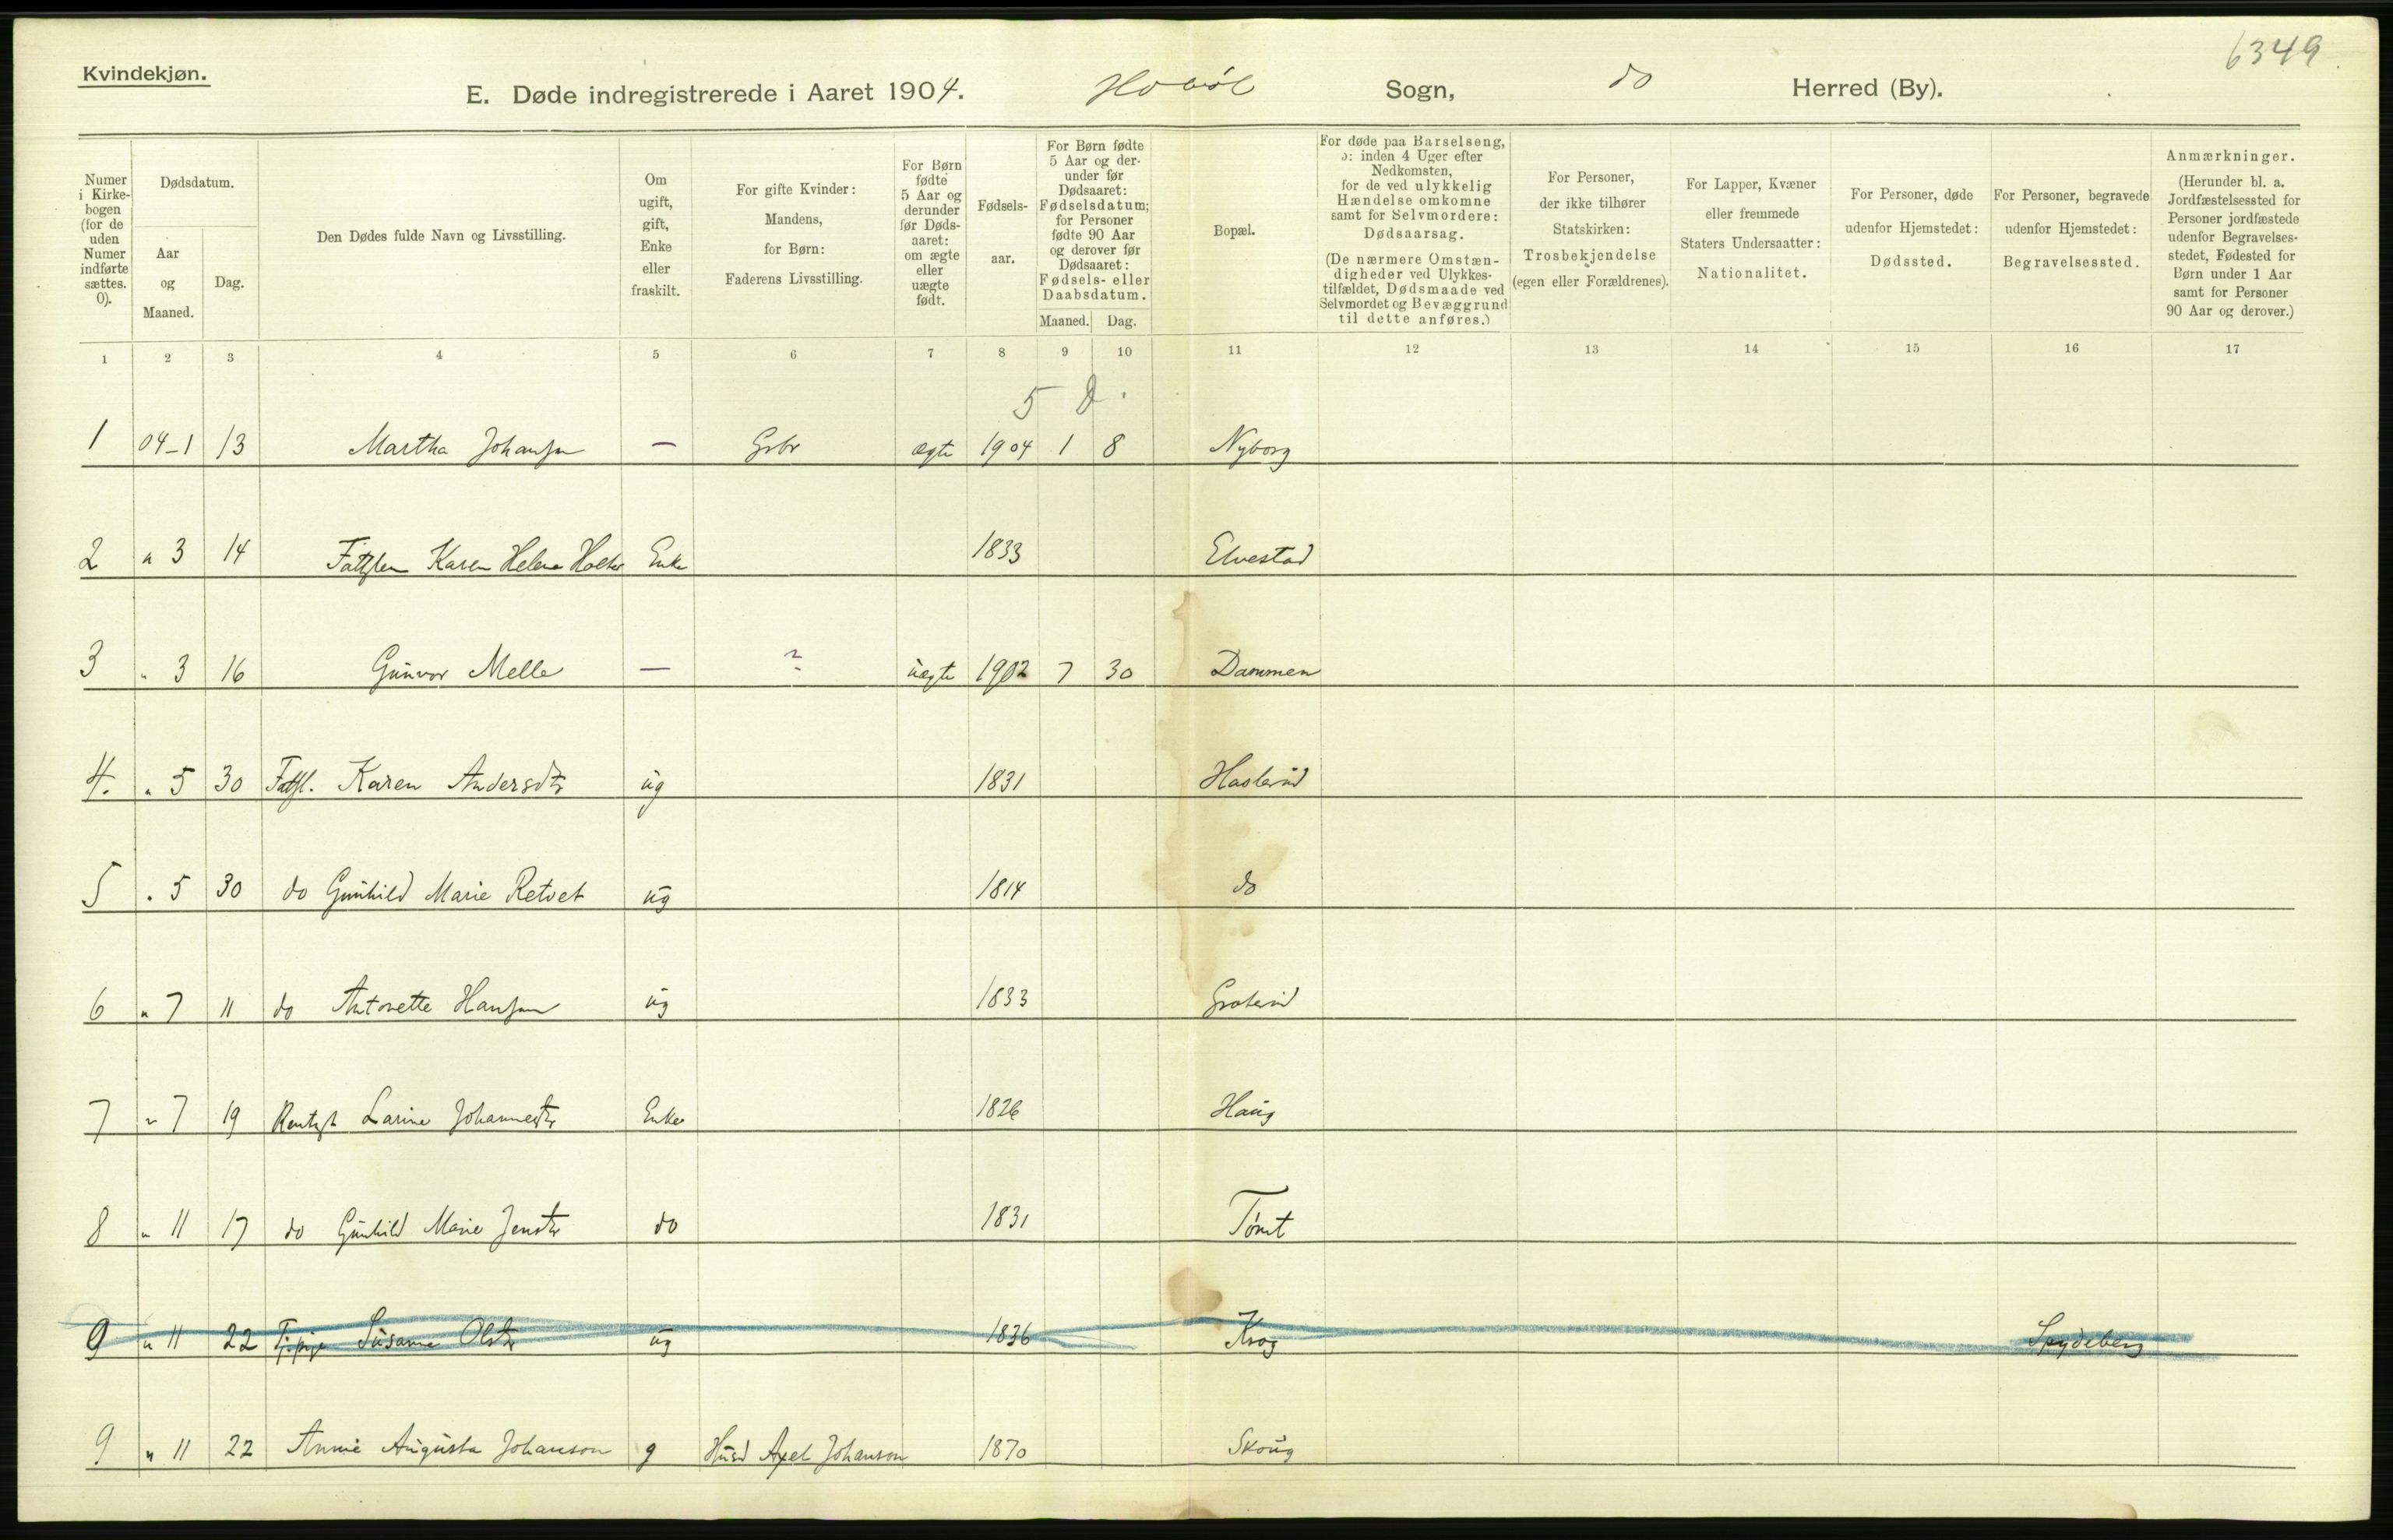 6349
Kvindekjøn.
E. Døde indregistrerede i Aaret 1904. Hobøl Sogn, do Herred (By).
Numer i Kirkebogen (for de uden Numer indførte sættes. 0).
Dødsdatum.
Aar og Maaned.
Dag.
Den Dødes fulde Navn og Livsstilling.
Om ugift, gift, Enke eller fraskilt.
For gifte Kvinder: Mandens, for Børn: Faderens Livsstilling.
For Børn fødte 5 Aar og derunder før Dødsaaret: om ægte eller uægte født.
Fødselsaar.
For Børn fødte 5 Aar og derunder før Dødsaaret: Fødselsdatum; for Personer fødte 90 Aar og derover før Dødsaaret: Fødsels- eller Daabsdatum.
Maaned. Dag.
Bopæl.
For døde paa Barselseng, ɔ: inden 4 Uger efter Nedkomsten, for de ved ulykkelig Hændelse omkomne samt for Selvmordere: Dødsaarsag.
(De nærmere Omstændigheder ved Ulykkestilfældet, Dødsmaade ved Selvmordet og Bevæggrund til dette anføres.)
For Personer, der ikke tilhører Statskirken: Trosbekjendelse (egen eller Forældrenes).
For Lapper, Kvæner eller fremmede Staters Undersaatter: Nationalitet.
For Personer, døde udenfor Hjemstedet: Dødssted.
For Personer, begravede udenfor Hjemstedet: Begravelsessted.
Anmærkninger.
(Herunder bl. a. Jordfæstelsessted for Personer jordfæstede udenfor Begravelsesstedet, Fødested for Børn under 1 Aar samt for Personer 90 Aar og derover.)
1 2 3 4 5 6 7 8 9 10 11 12 13 14 15 16 17
5 D.
1 04-1 13 Martha Johansen — Gbr ægte 1904 1 8 Nyborg
2 " 3 14 Karen Helene Holter Enke 1833 Elvestad
3 " 3 16 Gunvor Melle — ? uægte 1902 7 30 Dammen
4. " 5 30 Fattl. Karen Andersdtr ug 1831
5 " 5 30 do Gunhild Marie Retvet ug 1814 do
6 " 7 11 do Antonette Hansen ug 1833
7 " 7 19 Larine Johannesdtr Enke 1826 Haug
8 " 11 17 do Gunhild Marie Jensdtr do 1831 Tomt
9 " 11 22 Susanne Olsdtr ug 1836 Krog Spydeberg
9 " 11 22 Annie Augusta Johanson g Husd Axel Johanson 1870 Skoug